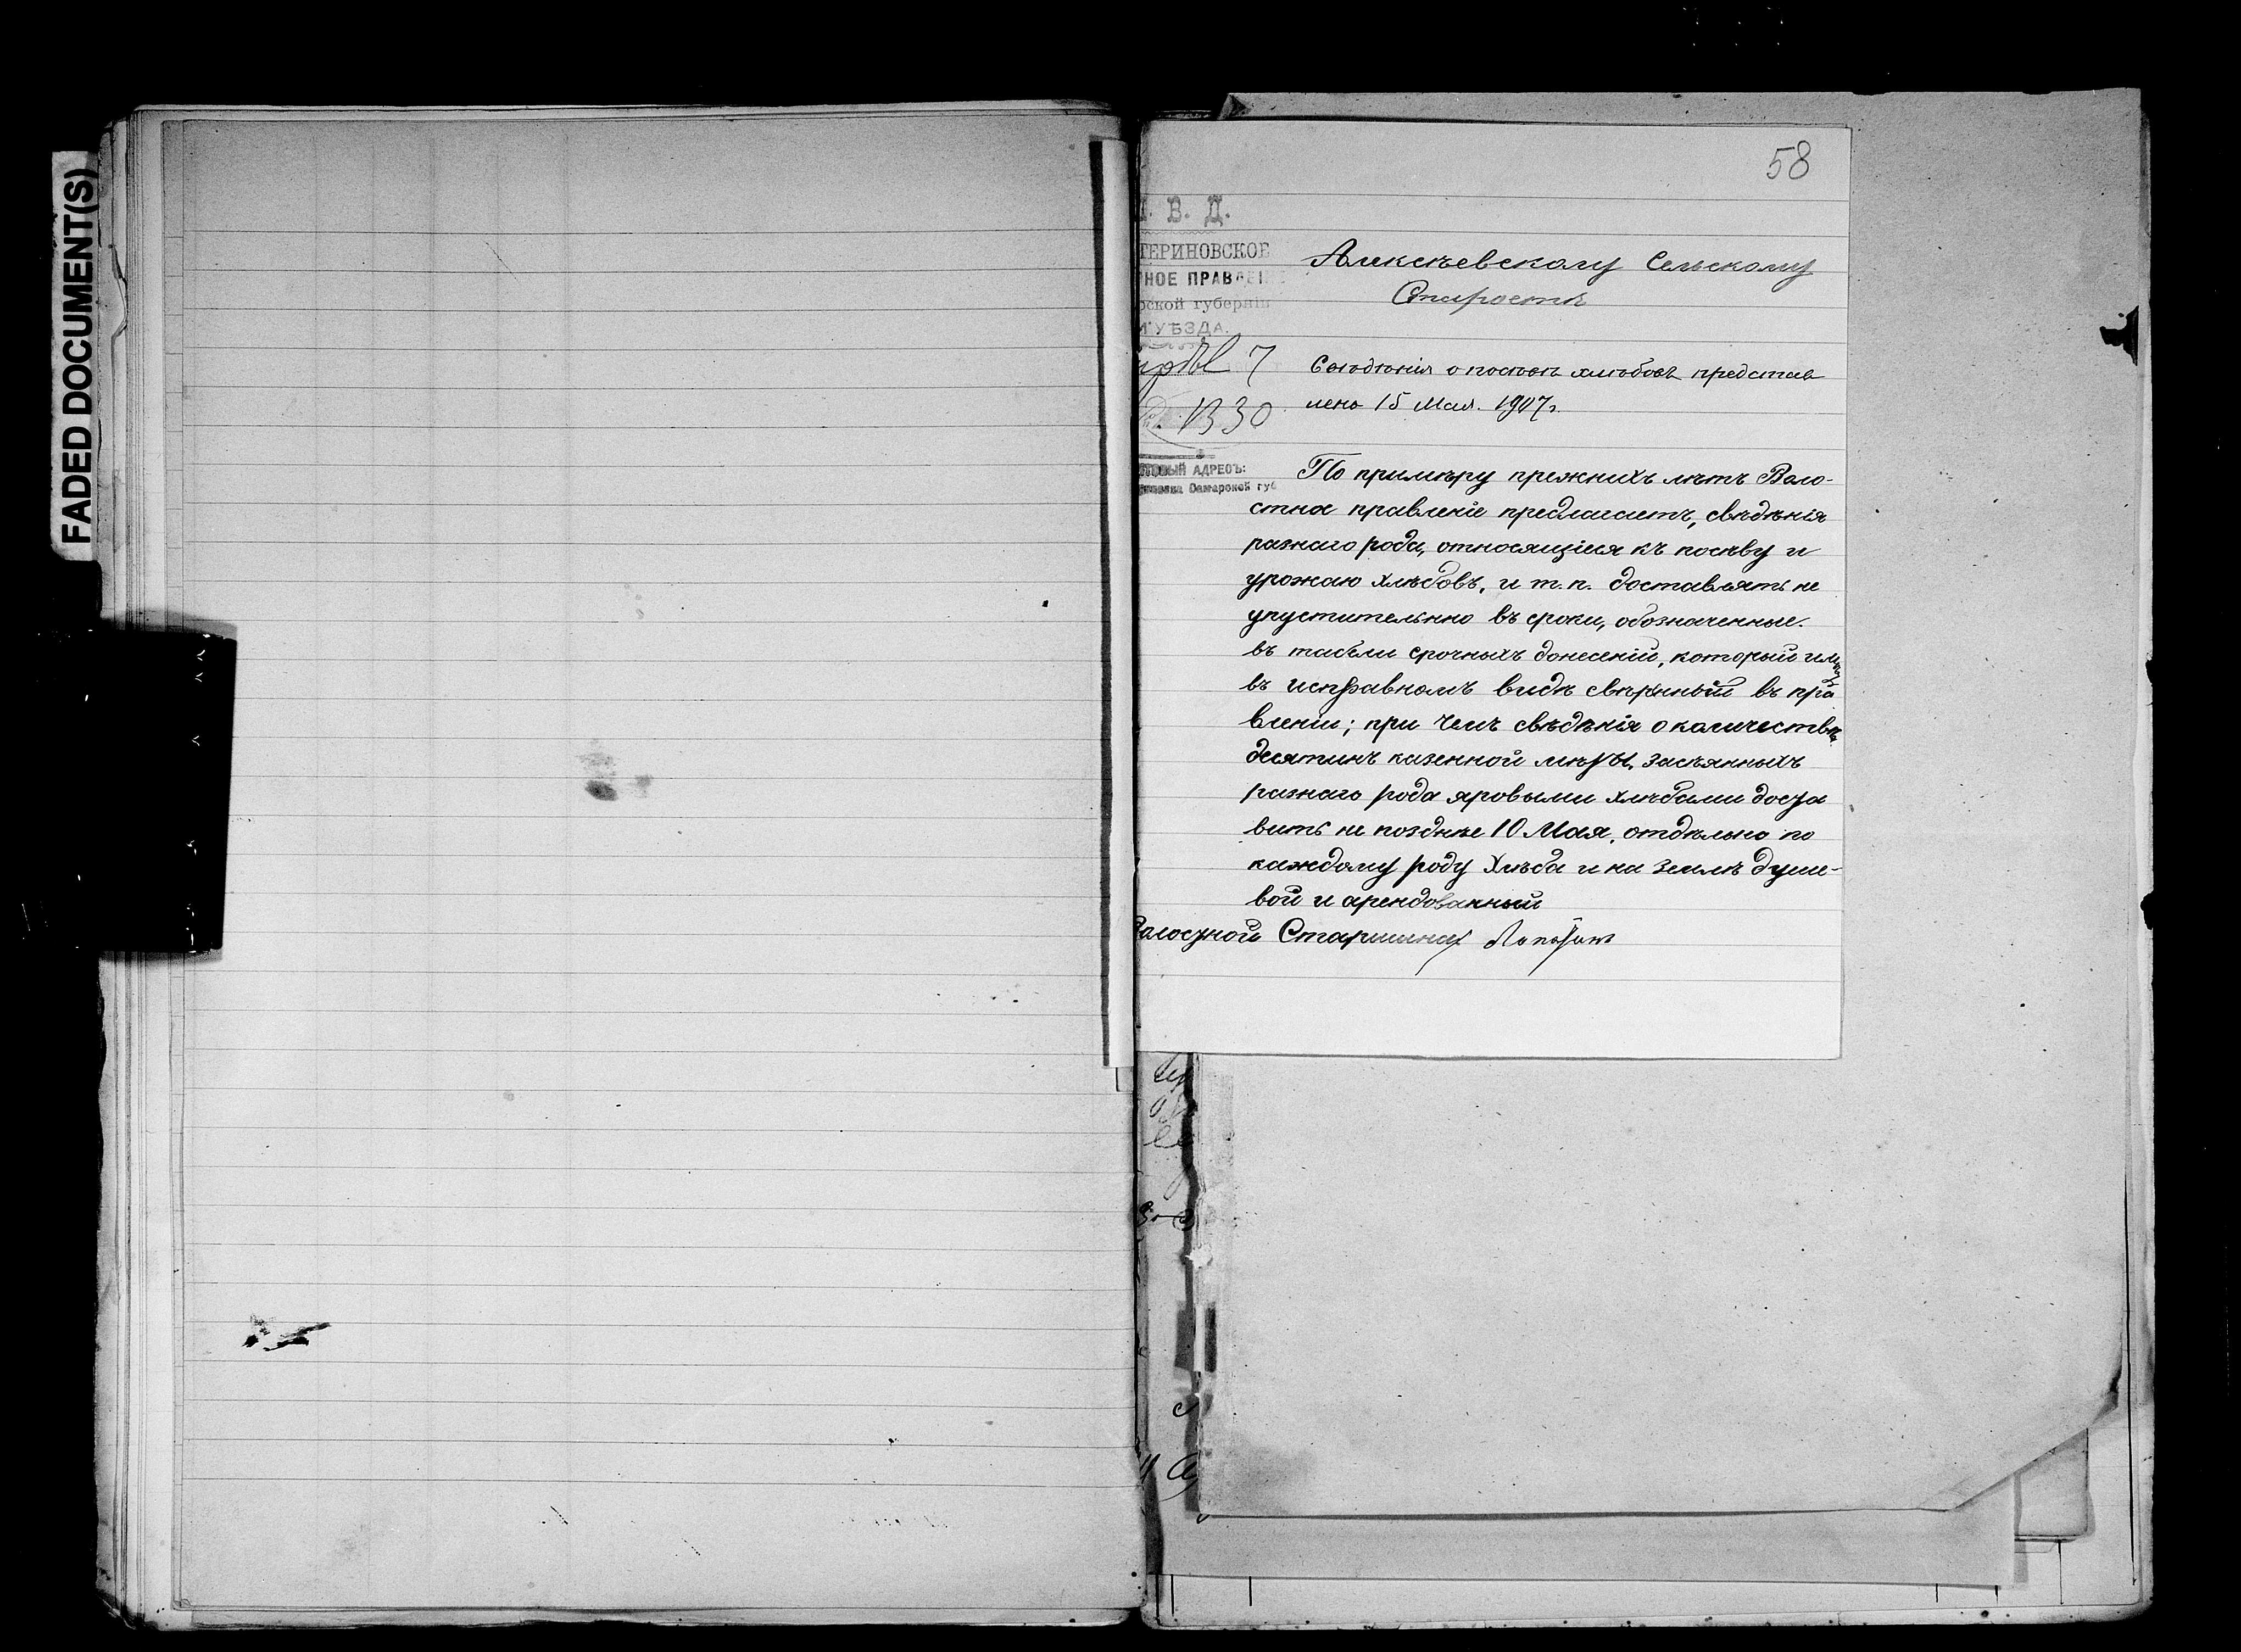 FADED DOCUMENT(S)
58
В. Д.
ТЕРИНОВСКОЕ
НОЕ ПРАВЛЕНІЕ
рской губерніи
УѢЗДА.
7
1330
АДРЕСЪ:
Самарской губ
Алексѣевскому Сельскому
Старостѣ
Свѣдѣнія о посѣвѣ хлѣбовъ представ
лено 15 Мая. 1907г.
По примѣру прежнихъ лѣтъ Воло-
стное правленіе предлагаетъ, свѣдѣнія
разнаго рода, относящіеся къ посѣву и
урожаю хлѣбовъ, и т. п. доставлять не
упустительно въ сроки, обозначенные
въ табели срочныхъ донесеній, который имѣть
въ исправномъ видѣ свѣренный въ пра
вленіи; при чемъ свѣдѣнія о количествѣ
десятинъ казенной мѣры, засѣянныхъ
разнаго рода яровыми хлѣбами доста
вить не позднѣе 10 Мая, отдѣльно по
каждому роду хлѣба и на землѣ душе-
вой и арендованный
Волостной Старшина